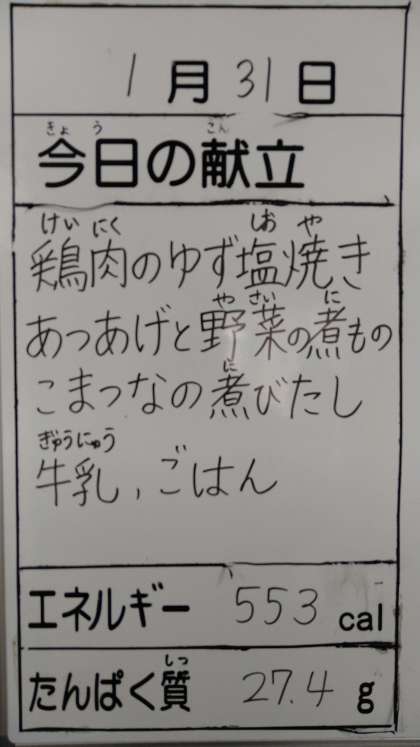 1月31日
きょう こん
今日の献立
けいにく しおや
鶏肉のゆず塩焼き
やさい に
あつあげと野菜の煮もの
に
こまつなの煮びたし
ぎゅうにゅう
牛乳,ごはん
エネルギー 553 cal
しつ
たんぱく質 27.4 g